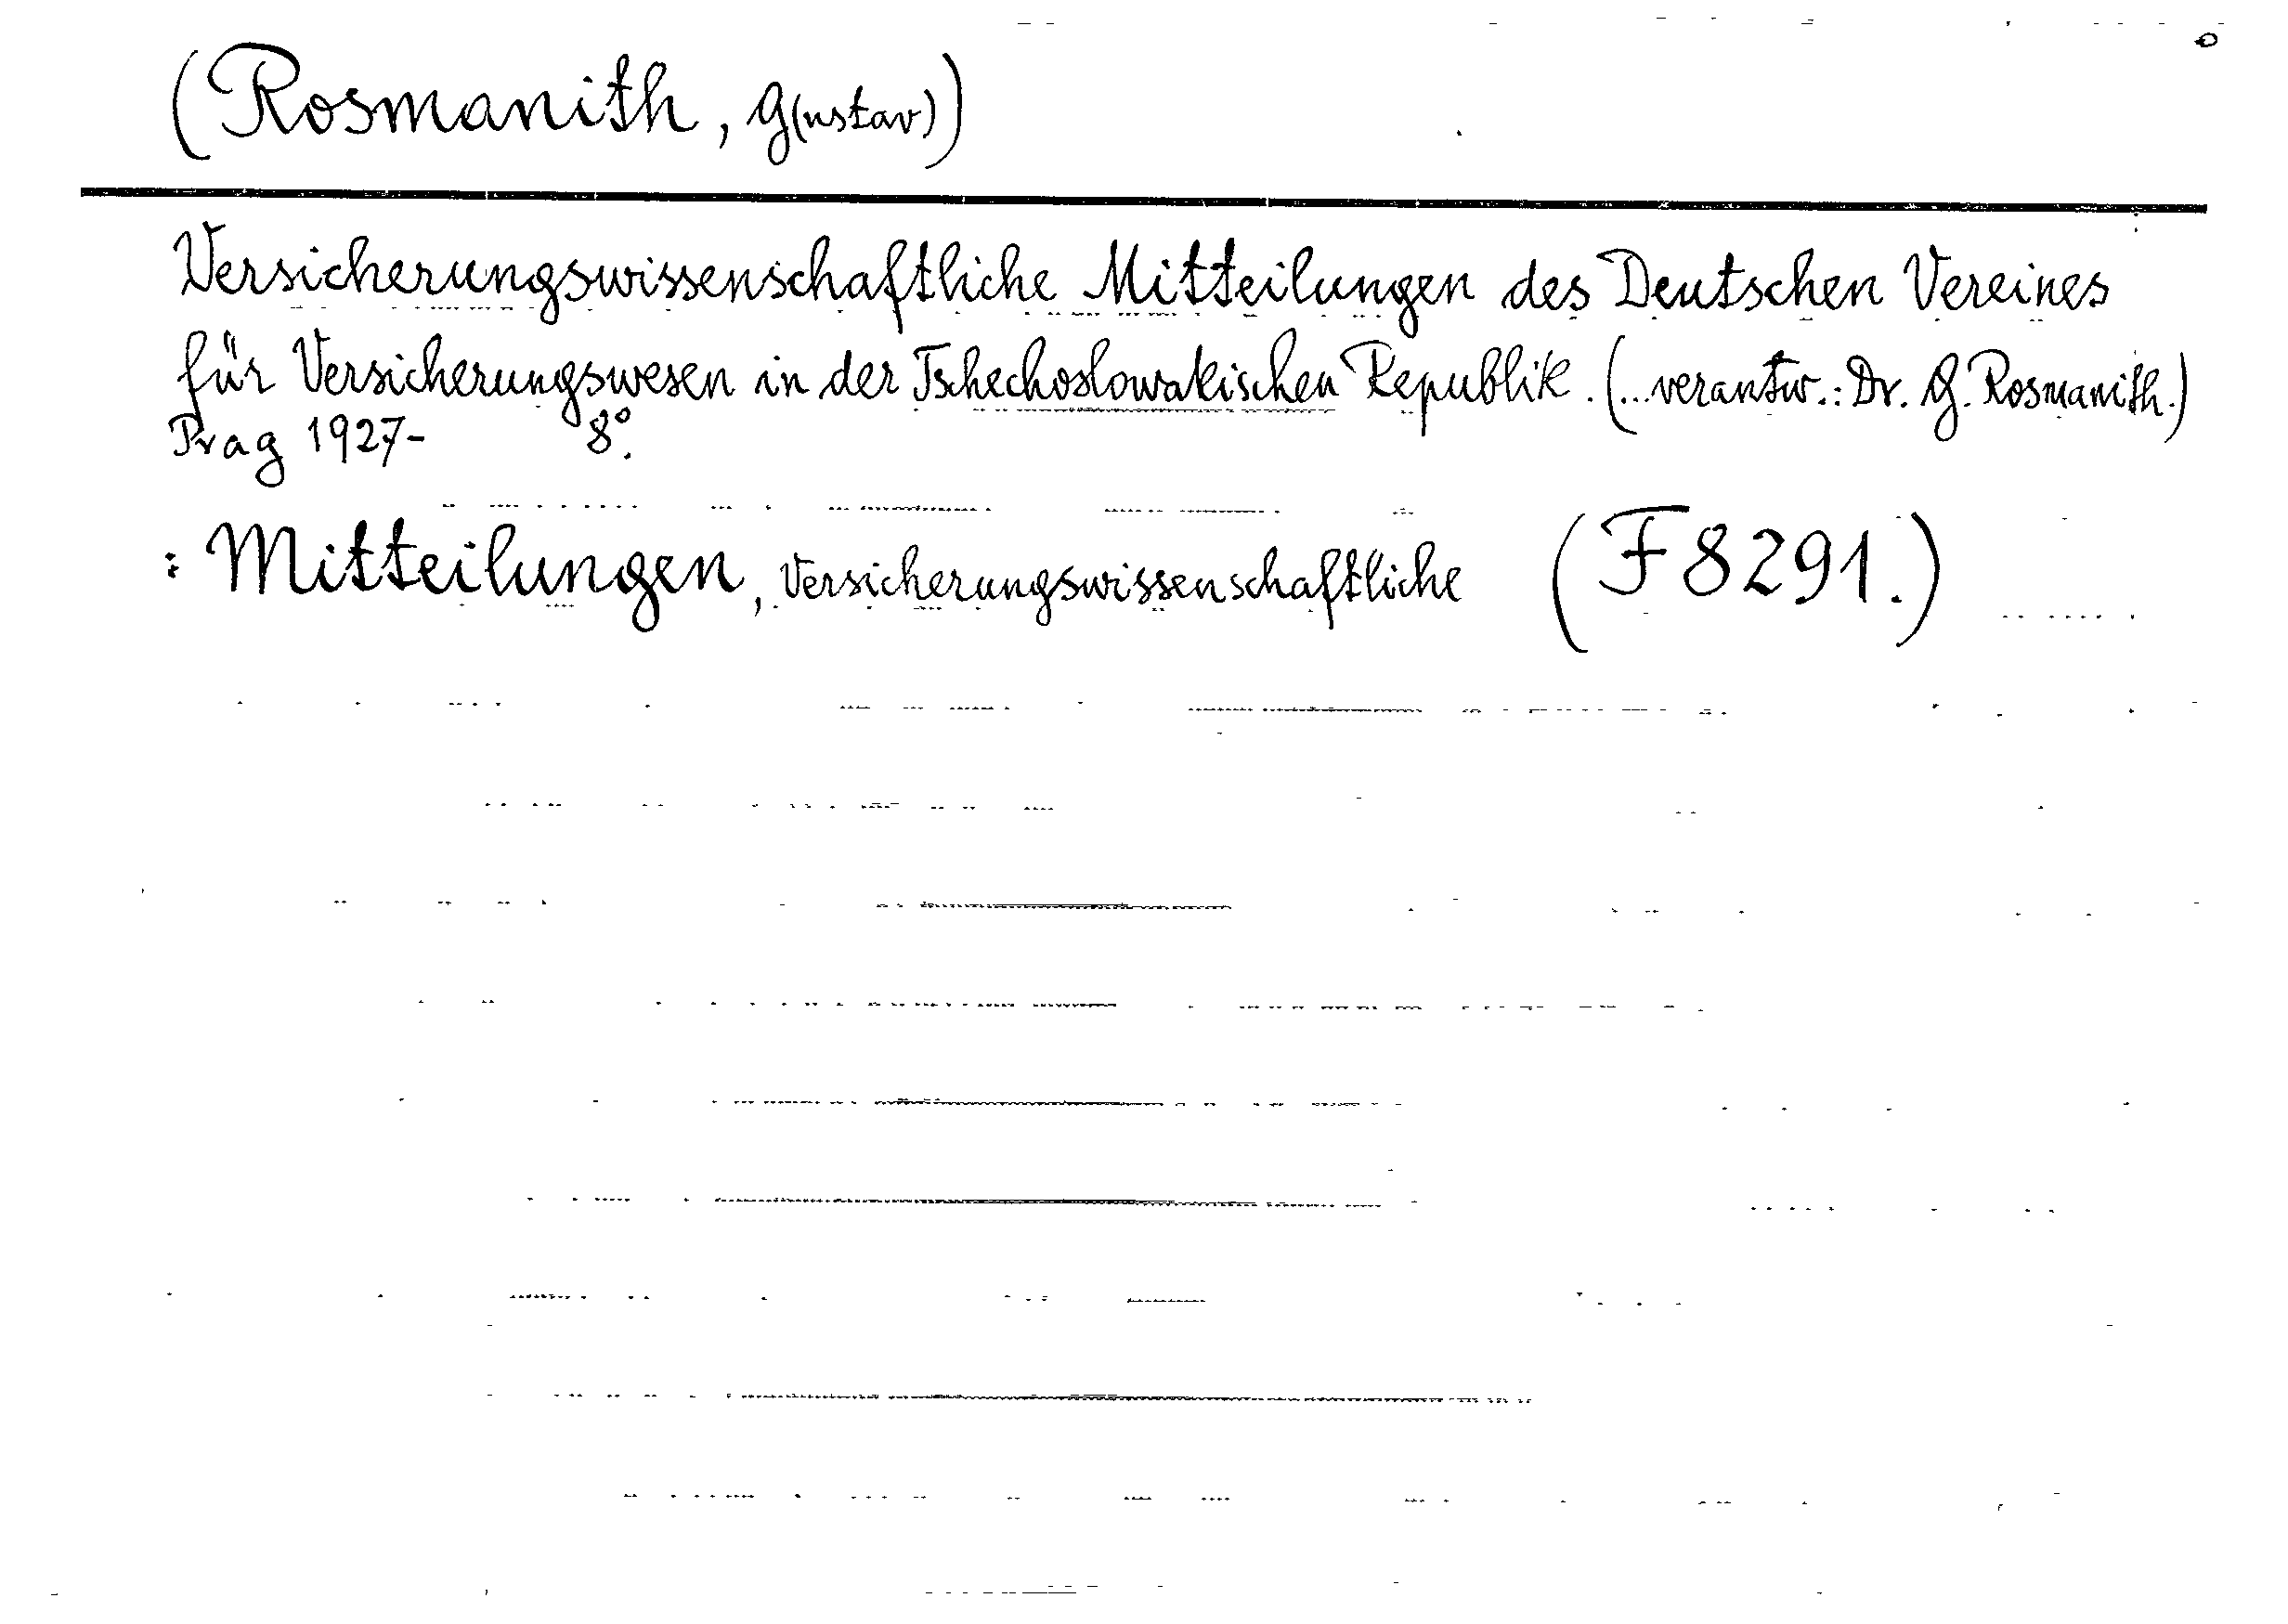 (Rosmanith, G(ustav))
Versicherungswissenschaftliche Mitteilungen des Deutschen Vereines
für Versicherungswesen in der Tschechoslowakischen Republik. (...verantw.: Dr. G. Rosmanith.)
Prag 1927- 8°.
: Mitteilungen, Versicherungswissenschaftliche (F 8291.)